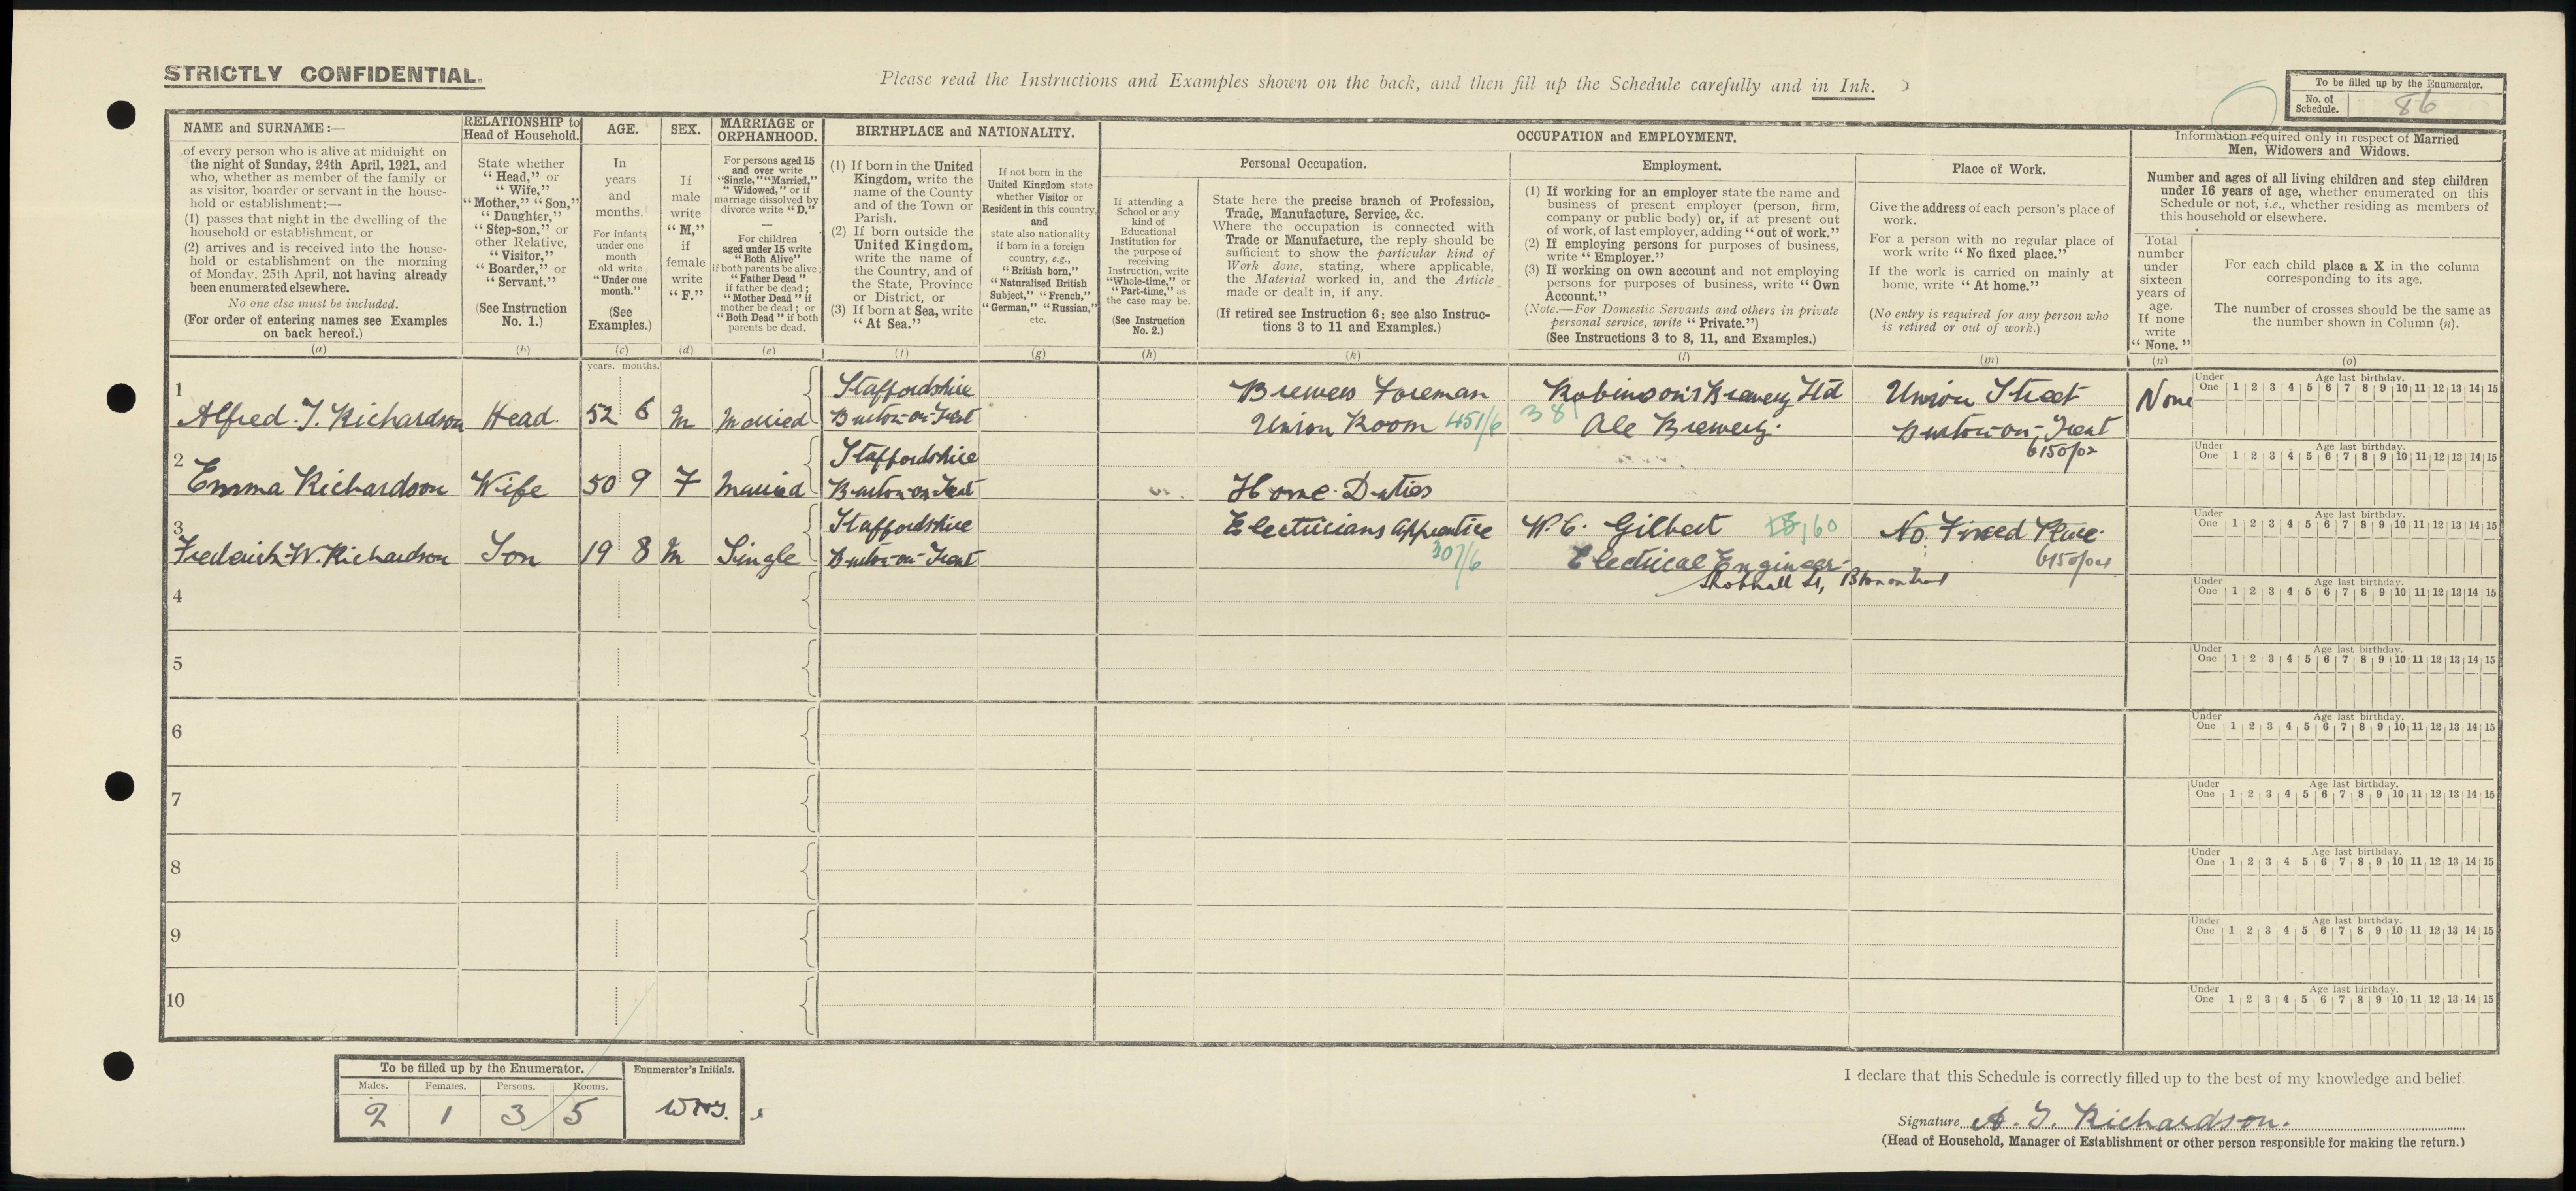 STRICTLY CONFIDENTIAL.
Please read the Instructions and Examples shown on the back, and then fill up the Schedule carefully and in Ink.
To be filled up by the Enumerator.
No. of Schedule. 86
NAME and SURNAME:—
of every person who is alive at midnight on
the night of Sunday, 24th April, 1921, and
who, whether as member of the family or
as visitor, boarder or servant in the house-
hold or establishment:—
(1) passes that night in the dwelling of the
household or establishment, or
(2) arrives and is received into the house-
hold or establishment on the morning
of Monday, 25th April, not having already
been enumerated elsewhere.
No one else must be included.
(For order of entering names see Examples
on back hereof.)
(a)
RELATIONSHIP to
Head of Household.
State whether
"Head," or
"Wife,"
"Mother," "Son,"
"Daughter,"
"Step-son," or
other Relative,
"Visitor,"
"Boarder," or
"Servant."
(See Instruction
No. 1.)
(b)
AGE.
In
years
and
months.
For infants
under one
month
old write
"Under one
month."
(See
Examples.)
(c)
SEX.
If
male
write
"M,"
if
female
write
"F."
(d)
MARRIAGE or
ORPHANHOOD.
For persons aged 15
and over write
"Single," "Married,"
"Widowed," or if
marriage dissolved by
divorce write "D."
For children
aged under 15 write
"Both Alive"
if both parents be alive;
"Father Dead"
if father be dead;
"Mother Dead" if
mother be dead; or
"Both Dead" if both
parents be dead.
(e)
BIRTHPLACE and NATIONALITY.
(1) If born in the United
Kingdom, write the
name of the County
and of the Town or
Parish.
(2) If born outside the
United Kingdom,
write the name of
the Country, and of
the State, Province
or District, or
(3) If born at Sea, write
"At Sea."
(f)
If not born in the
United Kingdom state
whether Visitor or
Resident in this country,
and
state also nationality
if born in a foreign
country, e.g.,
"British born,"
"Naturalised British
Subject," "French,"
"German," "Russian,"
etc.
(g)
OCCUPATION and EMPLOYMENT.
Personal Occupation.
If attending a
School or any
kind of
Educational
Institution for
the purpose of
receiving
Instruction, write
"Whole-time," or
"Part-time," as
the case may be.
(See Instruction
No. 2.)
(h)
State here the precise branch of Profession,
Trade, Manufacture, Service, &c.
Where the occupation is connected with
Trade or Manufacture, the reply should be
sufficient to show the particular kind of
Work done, stating, where applicable,
the Material worked in, and the Article
made or dealt in, if any.
(If retired see Instruction 6; see also Instruc-
tions 3 to 11 and Examples.)
(k)
Employment.
(1) If working for an employer state the name and
business of present employer (person, firm,
company or public body) or, if at present out
of work, of last employer, adding "out of work."
(2) If employing persons for purposes of business,
write "Employer."
(3) If working on own account and not employing
persons for purposes of business, write "Own
Account."
(Note.—For Domestic Servants and others in private
personal service, write "Private.")
(See Instructions 3 to 8, 11, and Examples.)
(l)
Place of Work.
Give the address of each person's place of
work.
For a person with no regular place of
work write "No fixed place."
If the work is carried on mainly at
home, write "At home."
(No entry is required for any person who
is retired or out of work.)
(m)
Information required only in respect of Married
Men, Widowers and Widows.
Number and ages of all living children and step children
under 16 years of age, whether enumerated on this
Schedule or not, i.e., whether residing as members of
this household or elsewhere.
Total
number
under
sixteen
years of
age.
If none
write
"None."
(n)
For each child place a X in the column
corresponding to its age.
The number of crosses should be the same as
the number shown in Column (n).
(o)
years. months.
1
Alfred. T. Richardson Head. 52 6 M Married Staffordshire
Burton-on-Trent
Brewers Foreman
Union Room 451/6
Robinson's Brewery Ltd
38
Ale Brewery.
Union Street
Burton-on-Trent
6150/02
None
Under One 1 2 3 4 5 6 7 8 9 10 11 12 13 14 15
Age last birthday.
2
Emma Richardson Wife 50 9 F Married Staffordshire
Burton-on-Trent
Home Duties
Under One 1 2 3 4 5 6 7 8 9 10 11 12 13 14 15
Age last birthday.
3
Frederick W. Richardson Son 19 8 M Single Staffordshire
Burton-on-Trent
Electricians Apprentice
307/6
W. C. Gilbert
160
Electrical Engineer
Shobnall St, Bton on Trent
No Fixed Place.
6150/04
Under One 1 2 3 4 5 6 7 8 9 10 11 12 13 14 15
Age last birthday.
4
Under One 1 2 3 4 5 6 7 8 9 10 11 12 13 14 15
Age last birthday.
5
Under One 1 2 3 4 5 6 7 8 9 10 11 12 13 14 15
Age last birthday.
6
Under One 1 2 3 4 5 6 7 8 9 10 11 12 13 14 15
Age last birthday.
7
Under One 1 2 3 4 5 6 7 8 9 10 11 12 13 14 15
Age last birthday.
8
Under One 1 2 3 4 5 6 7 8 9 10 11 12 13 14 15
Age last birthday.
9
Under One 1 2 3 4 5 6 7 8 9 10 11 12 13 14 15
Age last birthday.
10
Under One 1 2 3 4 5 6 7 8 9 10 11 12 13 14 15
Age last birthday.
To be filled up by the Enumerator.
Enumerator's Initials.
Males. Females. Persons. Rooms.
2 1 3 5
I declare that this Schedule is correctly filled up to the best of my knowledge and belief
Signature A. T. Richardson.
(Head of Household, Manager of Establishment or other person responsible for making the return.)